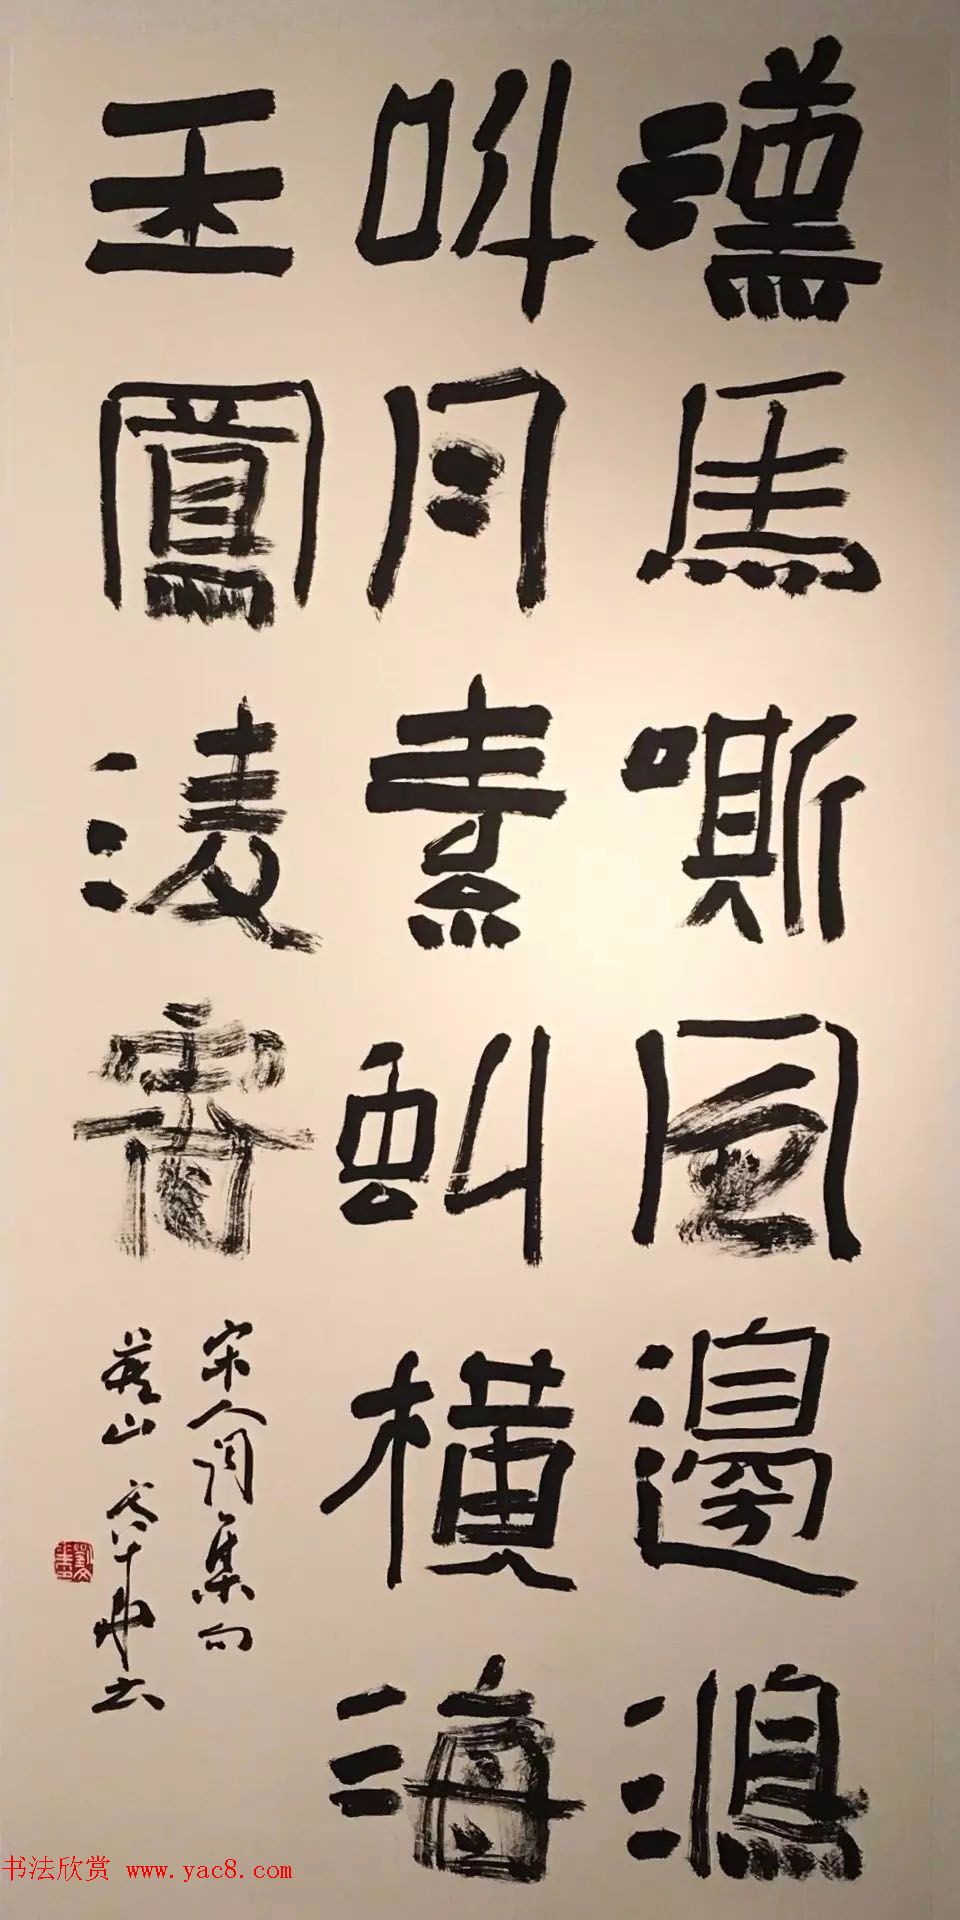 馬嘶風邊鴻
叫月素虬橫海
玉鳳淩霄
宋人詞集句
山
书法欣赏 www.yac8.com